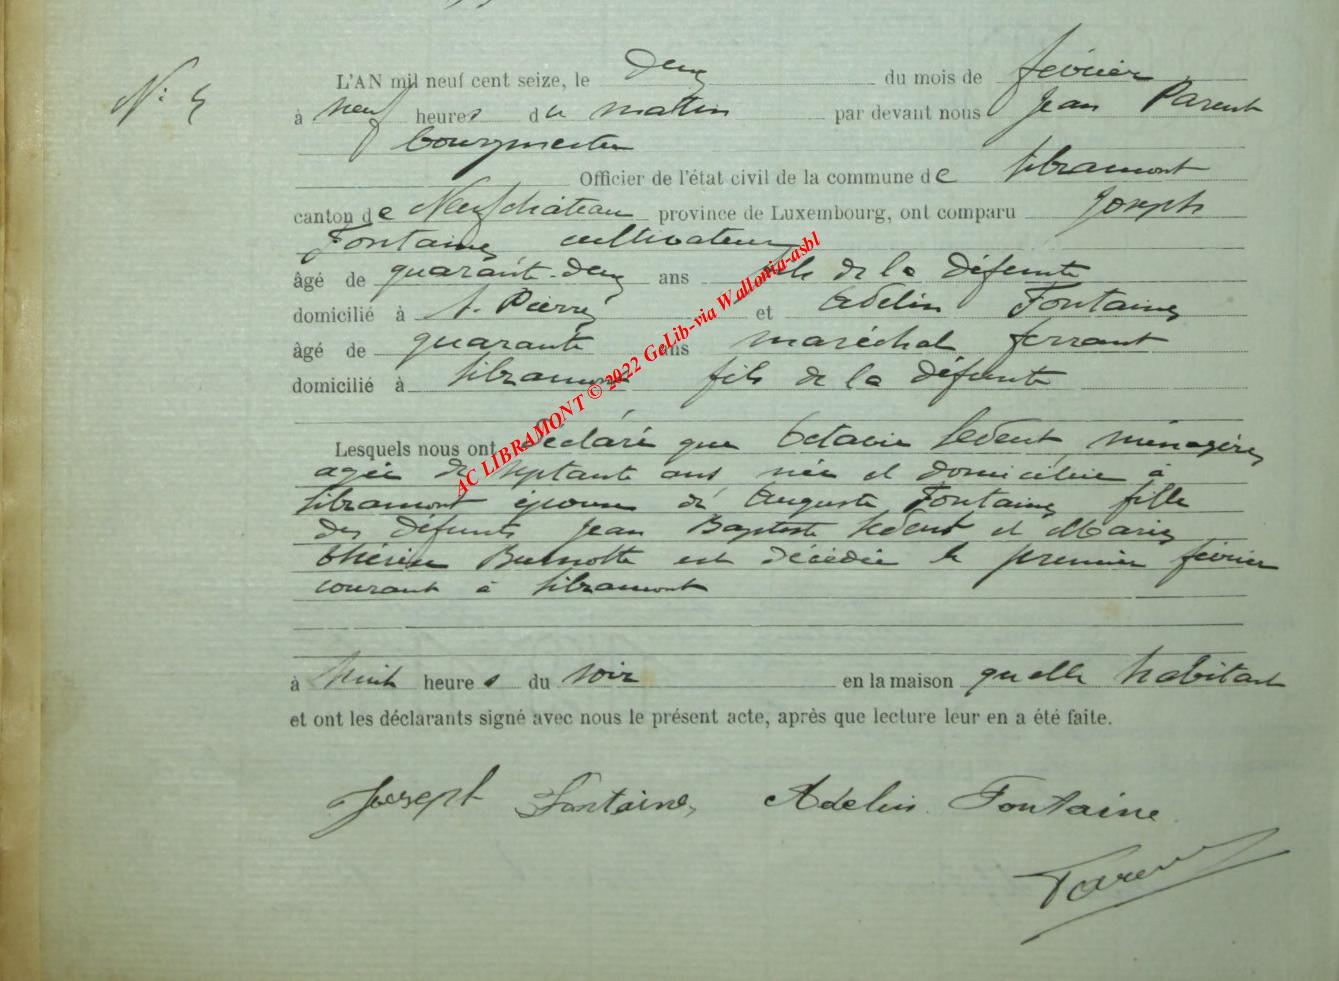 N: 5
L'AN mil neuf cent seize, le deux du mois de février
à neuf heures du matin par devant nous Jean Parent
bourgmestre
Officier de l'état civil de la commune de Libramont
canton de Neufchâteau province de Luxembourg, ont comparu Joseph
Fontaine cultivateur
âgé de quarante-deux ans fils de la défunte
domicilié à St. Pierre et Adelin Fontaine
âgé de quarante ans maréchal ferrant
domicilié à Libramont fils de la défunte
Lesquels nous ont déclaré que Octavie Ledent, ménagère
agée de septante ans née et domiciliée à
Libramont épouse de Auguste Fontaine fille
des défunts Jean Baptiste Ledent et Marie
thérèse est décédée le premier février
courant à Libramont
à huit heures du soir en la maison quelle habitait
et ont les déclarants signé avec nous le présent acte, après que lecture leur en a été faite.
Joseph Fontaine, Adelin Fontaine
Parent
AC LIBRAMONT © 2022 GeLib-via Wallonia-asbl